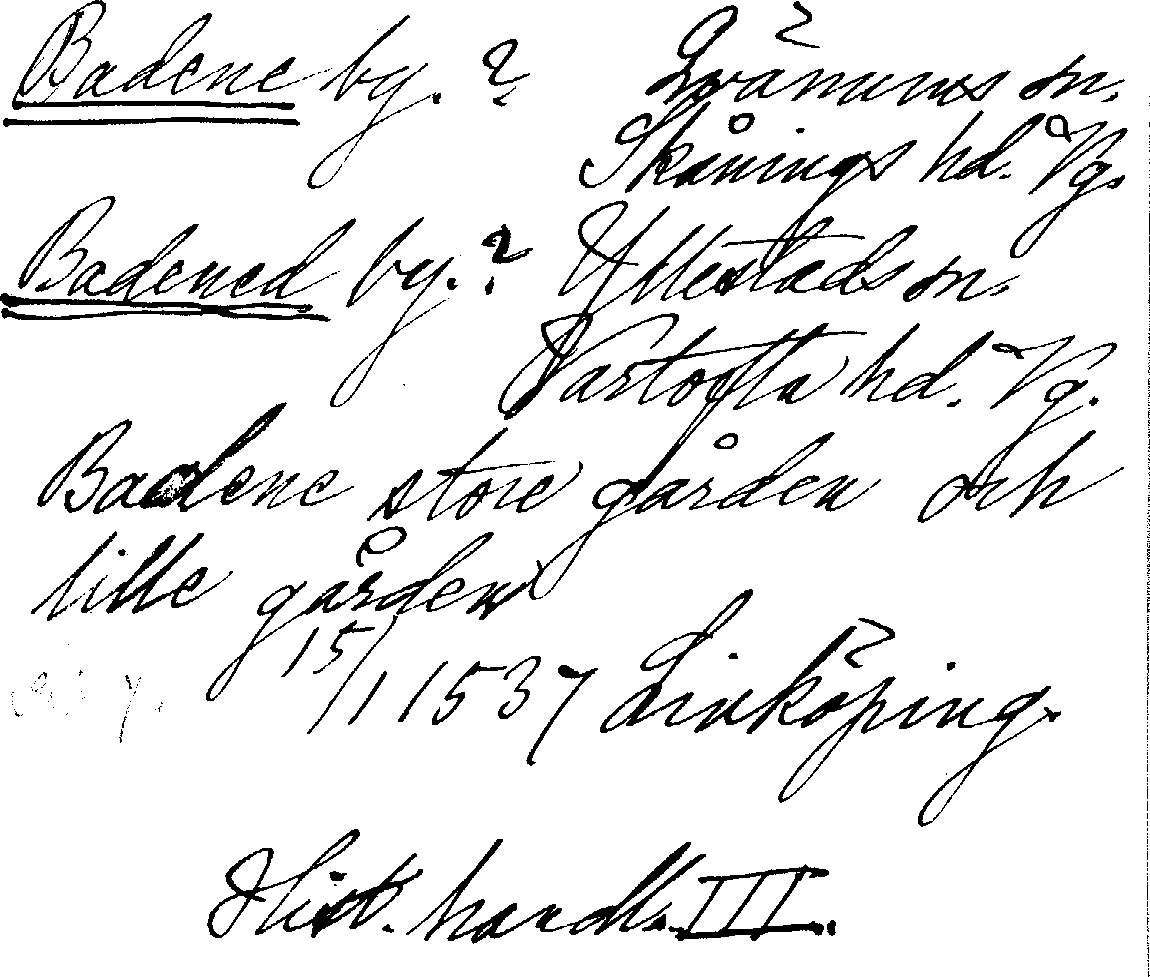 Badene by. ? Lvänums sn.
Skånings hd. Vg.
Badened by. ? Yllestads sn.
Vartofta hd. Vg.
Badene store gården och
lille gården
15/1 1537 Linköping.
Hist. handl. III.